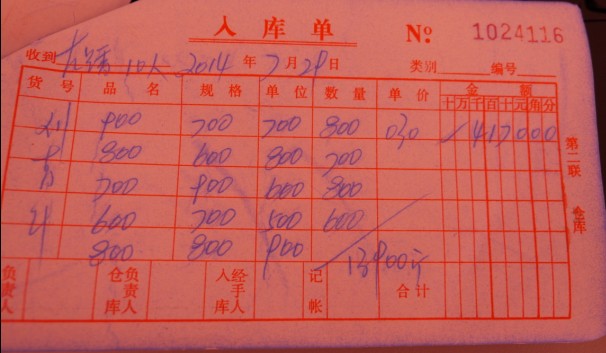 入库单 № 1024116
收到 10人 2014 年 7 月 29 类别 编号
货号 品名 规格 单位 数量 单价 金额
十万千百十元角分
900 700 700 800 030 417000
800 600 800 700
700 900 600 800
600 700 500 600
800 800 900 13900斤
合计
第二联 仓库
负责人 仓库负责人 经手人入库 记帐